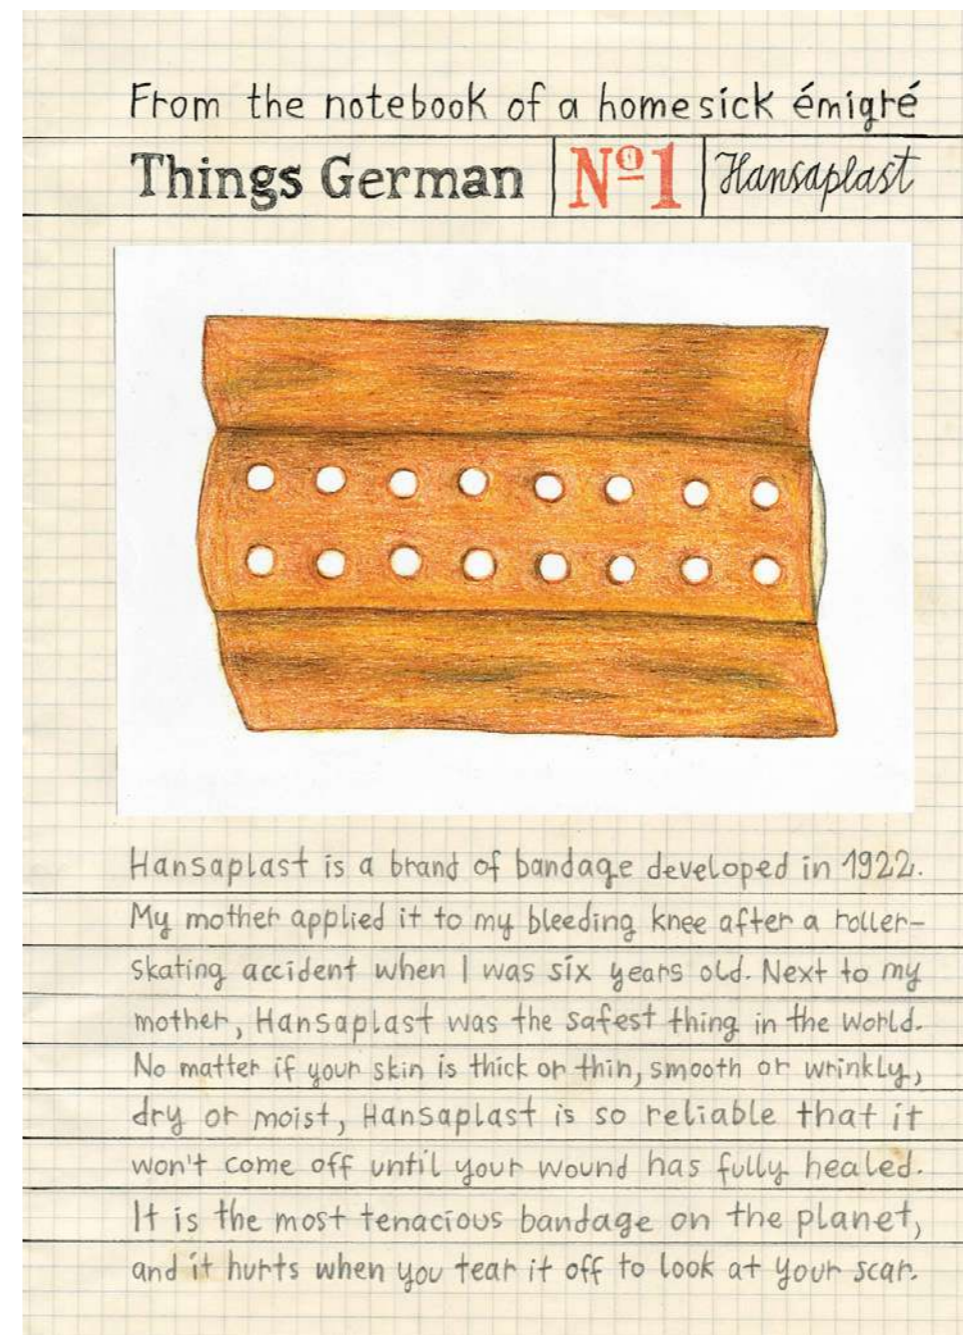 From the notebook of a homesick émigré
Things German Nº1 Hansaplast
Hansaplast is a brand of bandage developed in 1922.
My mother applied it to my bleeding knee after a roller-
skating accident when I was six years old. Next to my
mother, Hansaplast was the safest thing in the world.
No matter if your skin is thick or thin, smooth or wrinkly,
dry or moist, Hansaplast is so reliable that it
won't come off until your wound has fully healed.
It is the most tenacious bandage on the planet,
and it hurts when you tear it off to look at your scar.